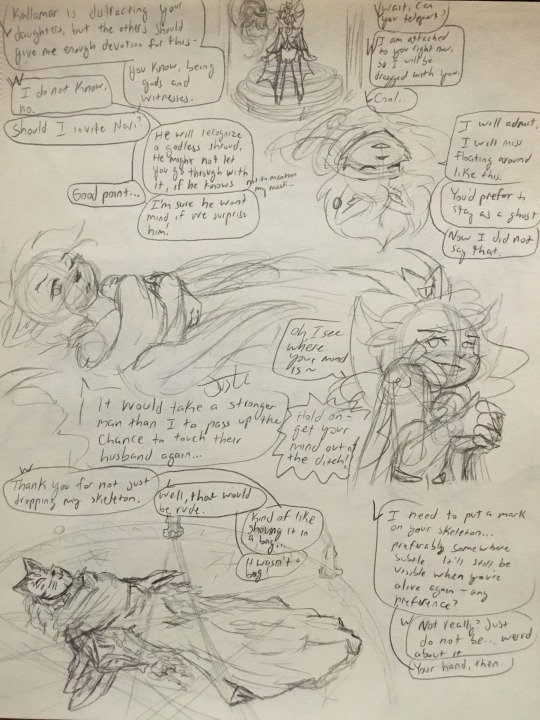 Kallamar is distracting your
daughters, but the others should
give me enough devotion for this-
You know, being
gods and
witnesses.
I do not know,
no.
Should I invite Nari?
He will recognize
a godless shroud.
He might not let
you go through with
it, if he knows
not to mention
my mask...
Good point...
I'm sure he won't
mind if we surprise
him!
Wait, can
you teleport?
I am attached
to you right now.
So I will be
dragged with you.
Cool.
I will admit,
I will miss
floating around
like this.
You'd prefer to
stay as a ghost
Now I did not
say that.
Oh I see
where
your mind
is~
It would take a stronger
man than I to pass up the
chance to touch their
husband again...
Hold on-
get your
mind out of
the ditch!
Thank you for not just
dropping my skeleton.
Well, that would
be rude.
Kind of like
shoving it in
a bag...
It wasn't a
bag
I need to put a mark
on your skeleton...
preferably somewhere
subtle. It'll still be
visible when you're
alive again - any
preference?
Not really? Just
do not be... weird
about it
Your hand, then.